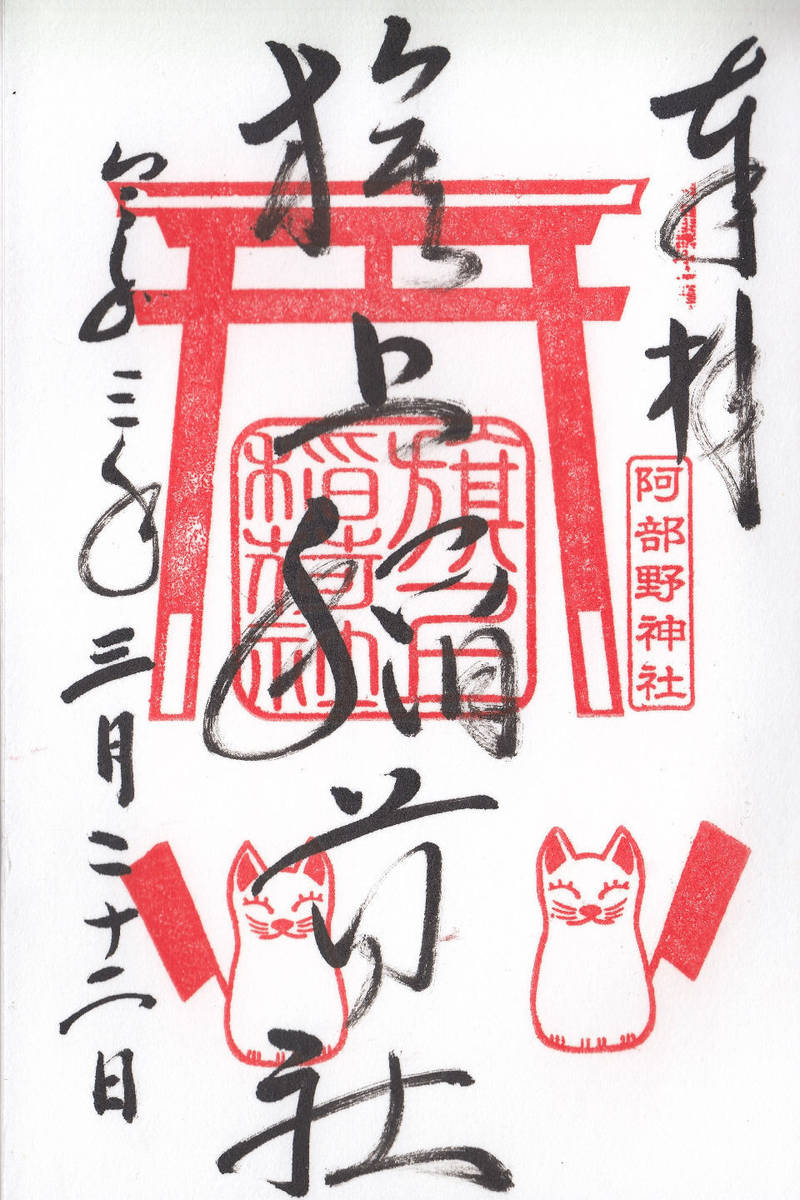 奉拝
阿部野神社
旗上稲荷社
稲荷社
令和三年三月二十二日